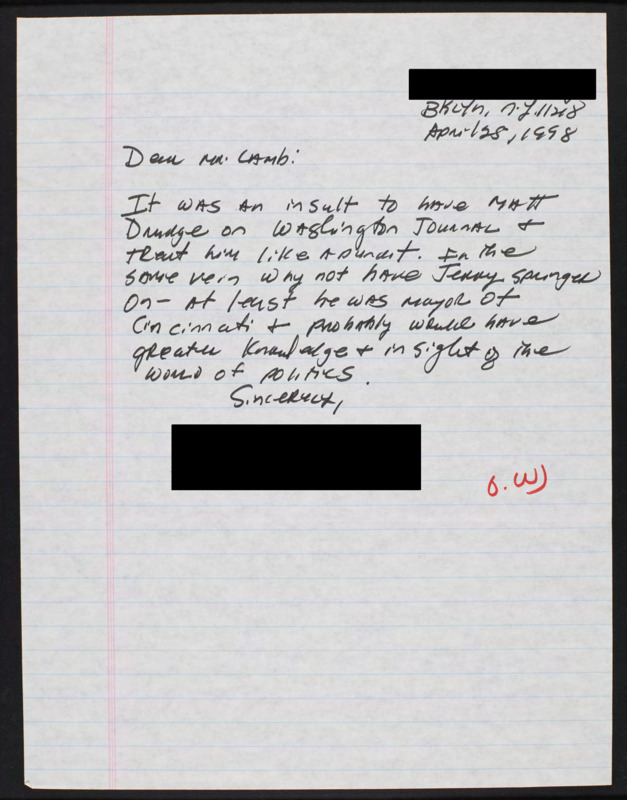 Bklyn, N.Y. 11218
April 28, 1998
Dear Mr. Lamb:
It was an insult to have Matt
Drudge on Washington Journal +
treat him like a pundit. In the
same vein why not have Jerry Springer
on- At least he was mayor of
Cincinnati + probably would have
greater knowledge + insight of the
world of politics.
Sincerely,
O.W)